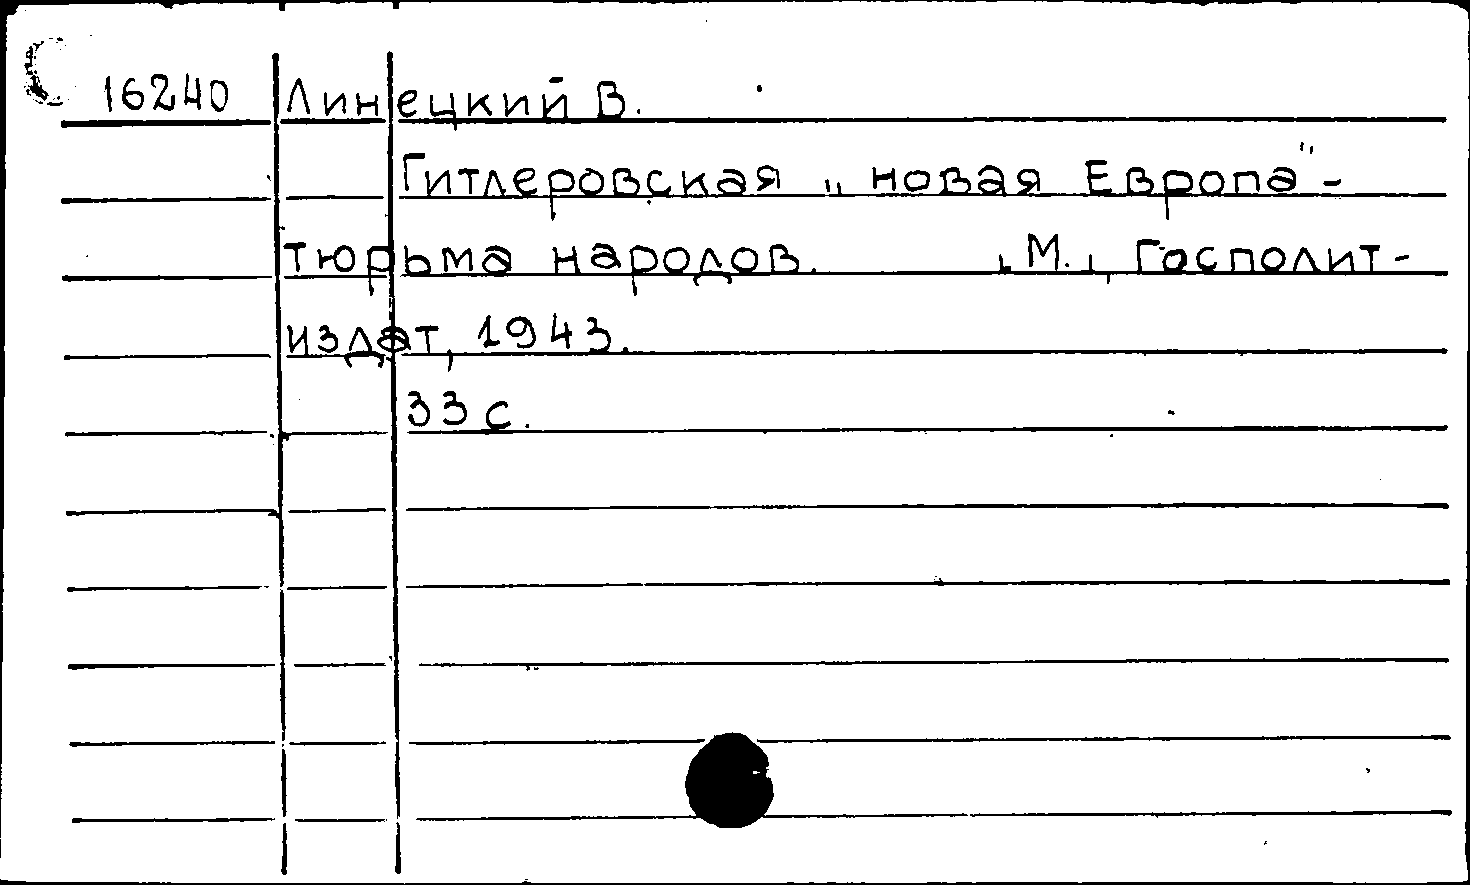 16240 Линецкий В.
Гитлеровская „новая Европа" -
тюрьма народов. , М., Госполит-
издат, 1943.
33 с.